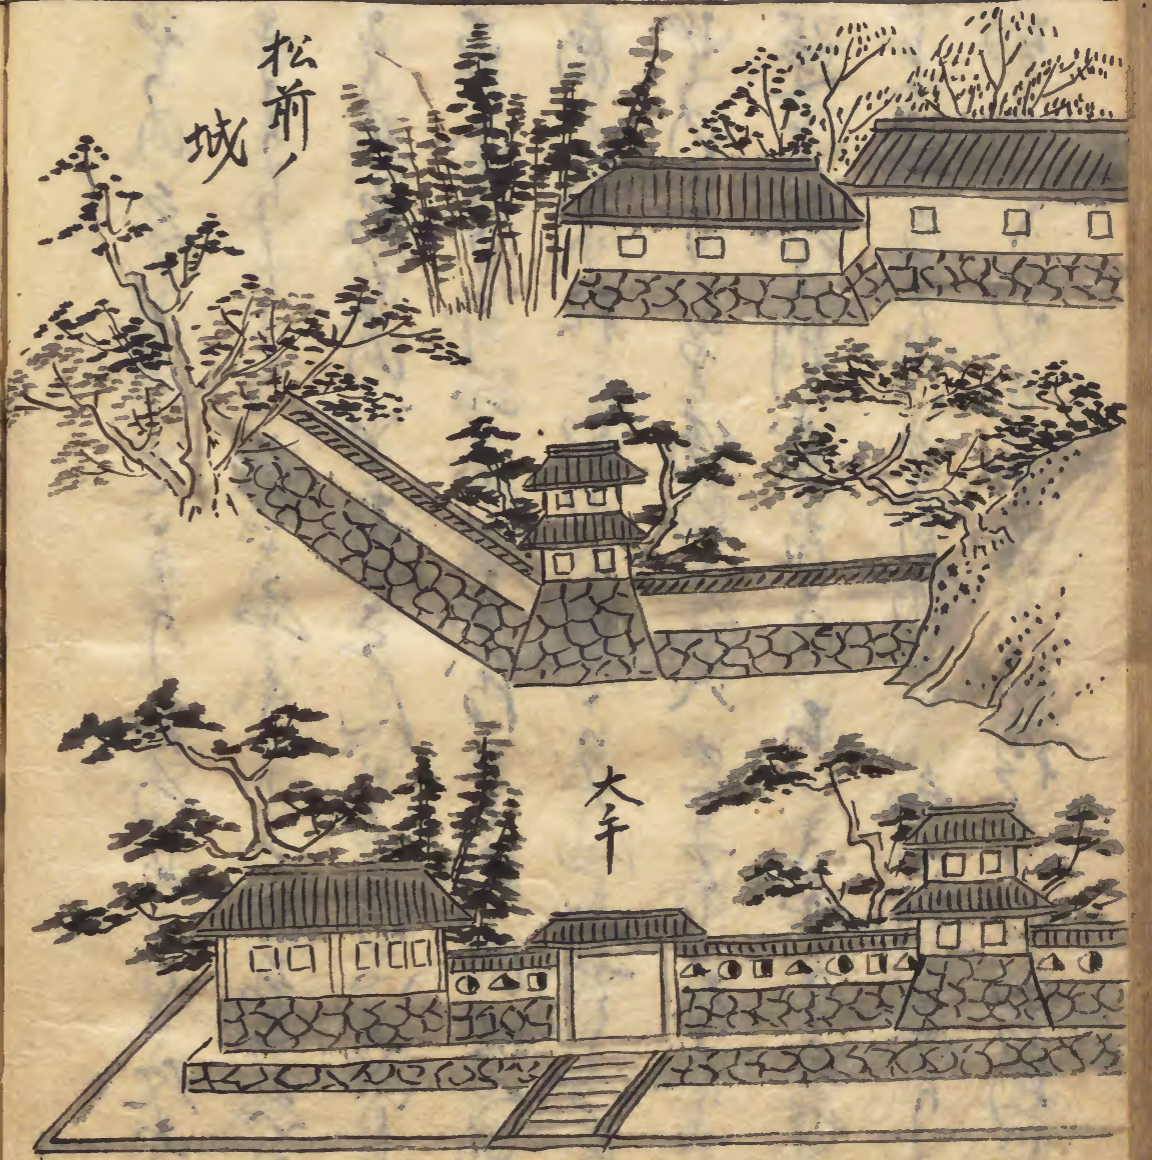 松前ノ
城
大手